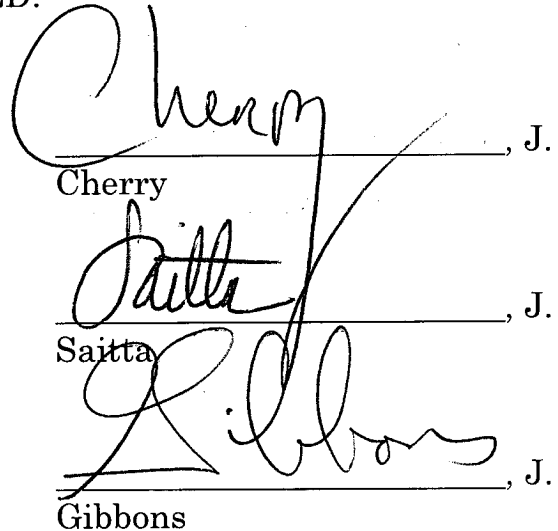 D.
Cherry
, J.
Cherry
Saitta
, J.
Saitta
Gibbons
, J.
Gibbons